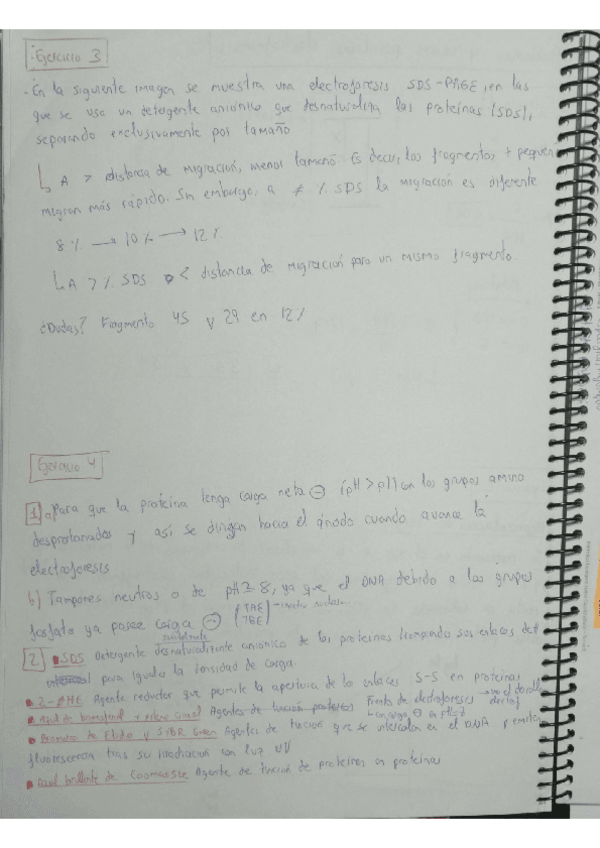 - Ejercicio 3
- En la siguiente imagen se muestra una electroforesis SDS-PAGE, en las
que se usa un detergente aniónico que desnaturaliza las proteínas (SDS),
separando exclusivamente por tamaño
↳ A > distancia de migración, menor tamaño. Es decir, los fragmentos + pequeñ
migran más rápido. Sin embargo, a ≠ % SDS la migración es diferente
8% → 10% → 12%
↳ A > % SDS < distancia de migración para un mismo fragmento.
¿Dudas? Fragmento 45 y 29 en 12%
Ejercicio 4
1 a) Para que la proteína tenga carga neta ⊖ (pH > pI) con los grupos amino
desprotonados y así se dirigan hacia el ánodo cuando avance la
electroforesis
b) Tampones neutros o de pH ≥ 8, ya que el DNA debido a los grupos
fosfato ya posee carga ⊖ (TAE TBE)
2 • SDS Detergente desnaturalizante anionico de las proteinas rompiendo sus enlaces
para igualar la densidad de carga.
• 2-βME Agente reductor que permite la apertura de los enlaces S-S en proteínas
• Azul de bromofenol y xileno cianol Agentes de tinción Frente de electroforesis
• Bromuro de Etidio y SYBR Green Agentes de tinción que se intercalan en el DNA y emiten
fluorescencia tras su irradiacion con luz UV
• Azul brillante de Coomassie Agente de tinción de proteínas en proteínas